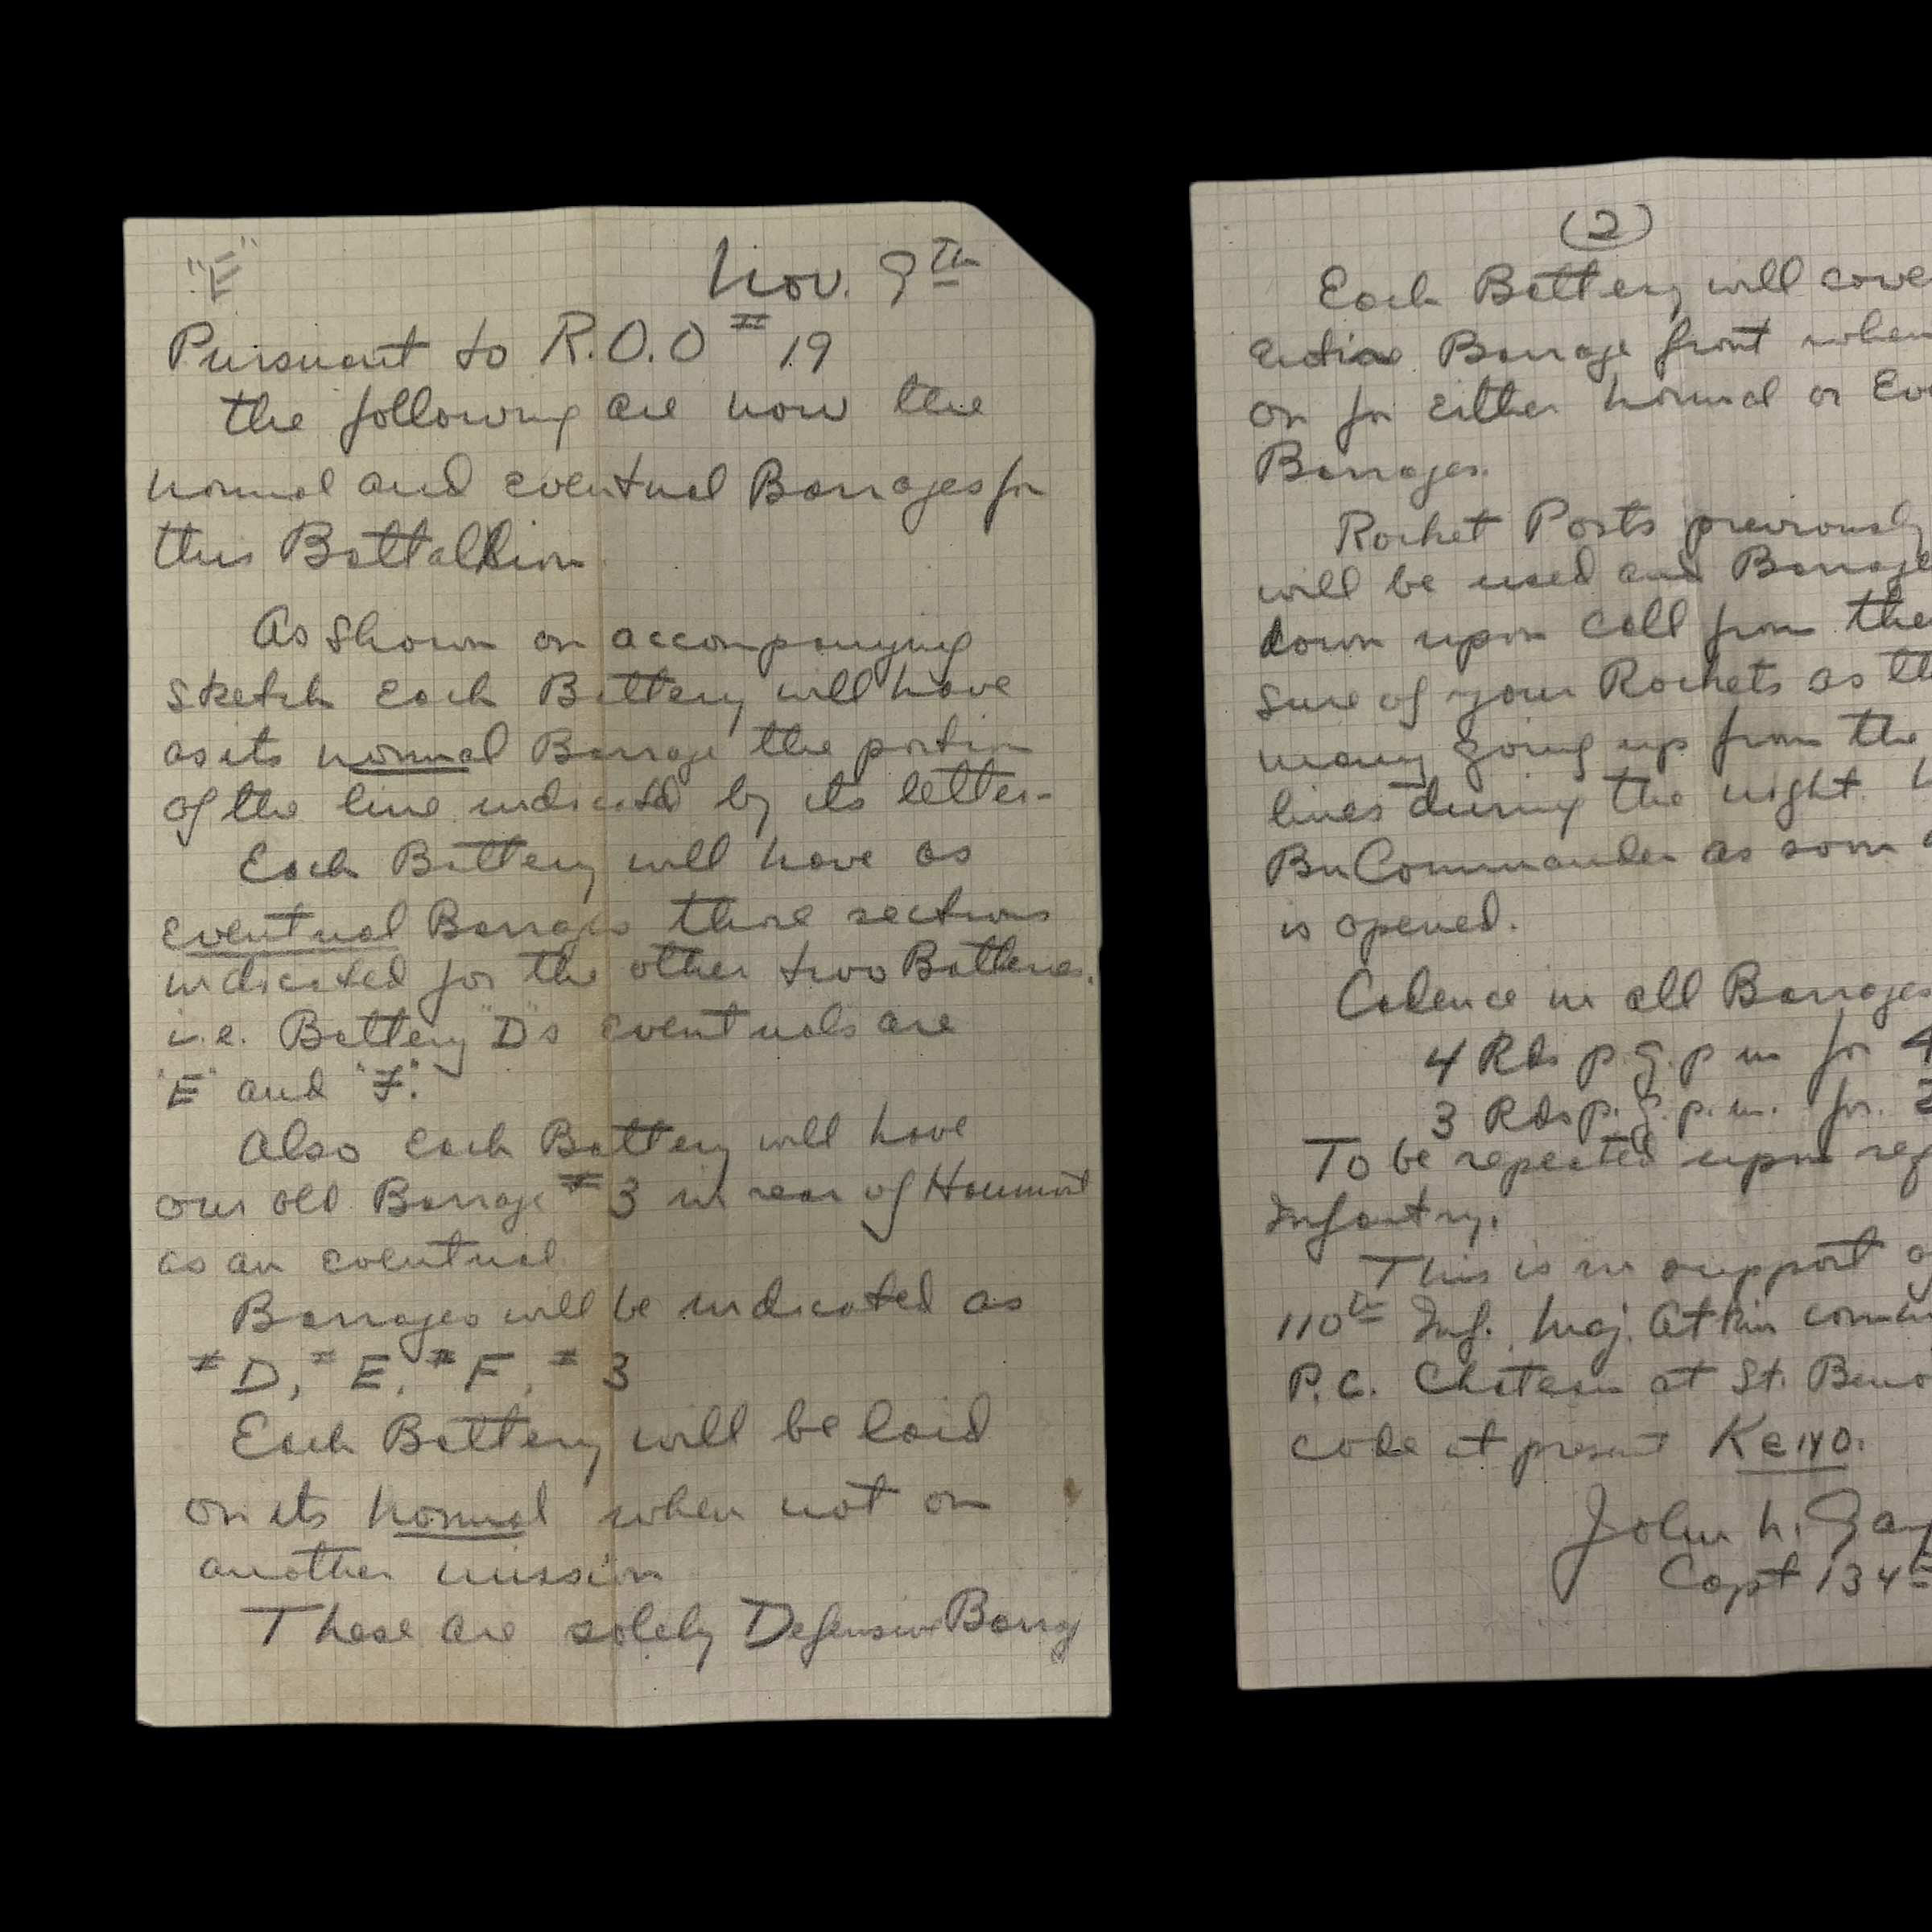 "E"
Nov. 9th
Pursuant to R.O.O #19
the following are now the
normal and eventual Barrages for
this Battallion
As shown on accompanying
sketch Each Battery will have
as its normal Barrage the portion
of the line indicated by its letter-
Each Battery will have as
eventual Barrages those sections
indicated for the other two Batteries.
i.e. Battery "D"s eventuals are
"E" and "F".
Also each Battery will have
our old Barrage #3 in rear of Haumont
as an eventual
Barrages will be indicated as
#D, #E, #F, #3
Each Battery will be laid
on its normal when not on
another mission
These are solely Defensive Barrag
(2)
Each Battery will cove
entire Barrage front when
on for either normal or Eve
Barrages.
Rocket Posts previously
will be used and Barrage
down upon call from the
sure of your Rockets as th
many going up from the
lines during the night
Bn Commander as soon
is opened.
Cadence in all Barrages
4 Rds p.g.p m for 4
3 Rds p.g.p.m. for
To be repeated upon req
Infantry.
This is in support o
110th Inf. Maj. Atkin comm
P.C. Chateau at St. Beno
code at present
John h. Ga
Capt 134th